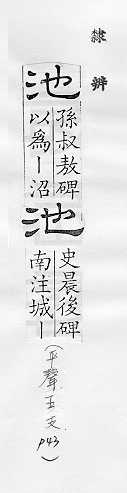 隸辨
池
孫叔敖碑
以為｜沼
池
史晨後碑
南注城｜
(平聲五支 p43)